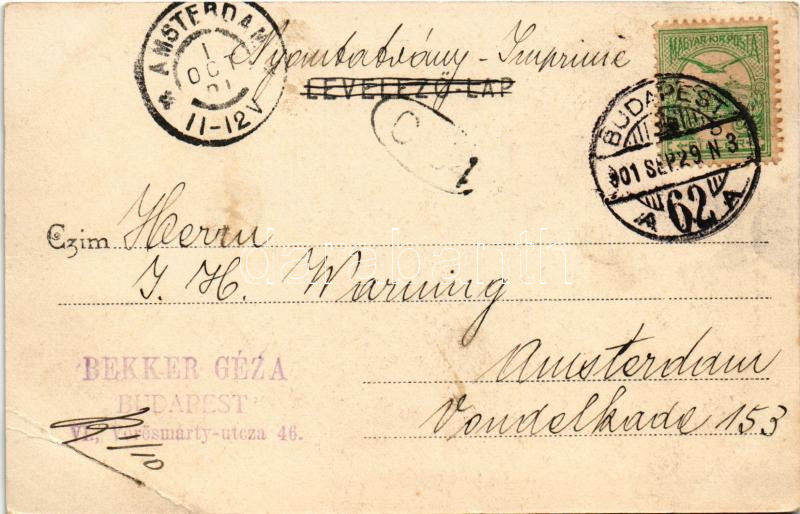 AMSTERDAM
1
OCT
01
11-12V
Nyomtatvány - Imprimé
LEVELEZŐ-LAP
MAGYAR KIR. POSTA
BUDAPEST
901 SEP. 29 N 3
A 62 A
Czim Herrn
J. H. Warning
darabanth
Amsterdam
Vondelkade 153
BEKKER GÉZA
BUDAPEST
VI., Vörösmarty-utcza 46.